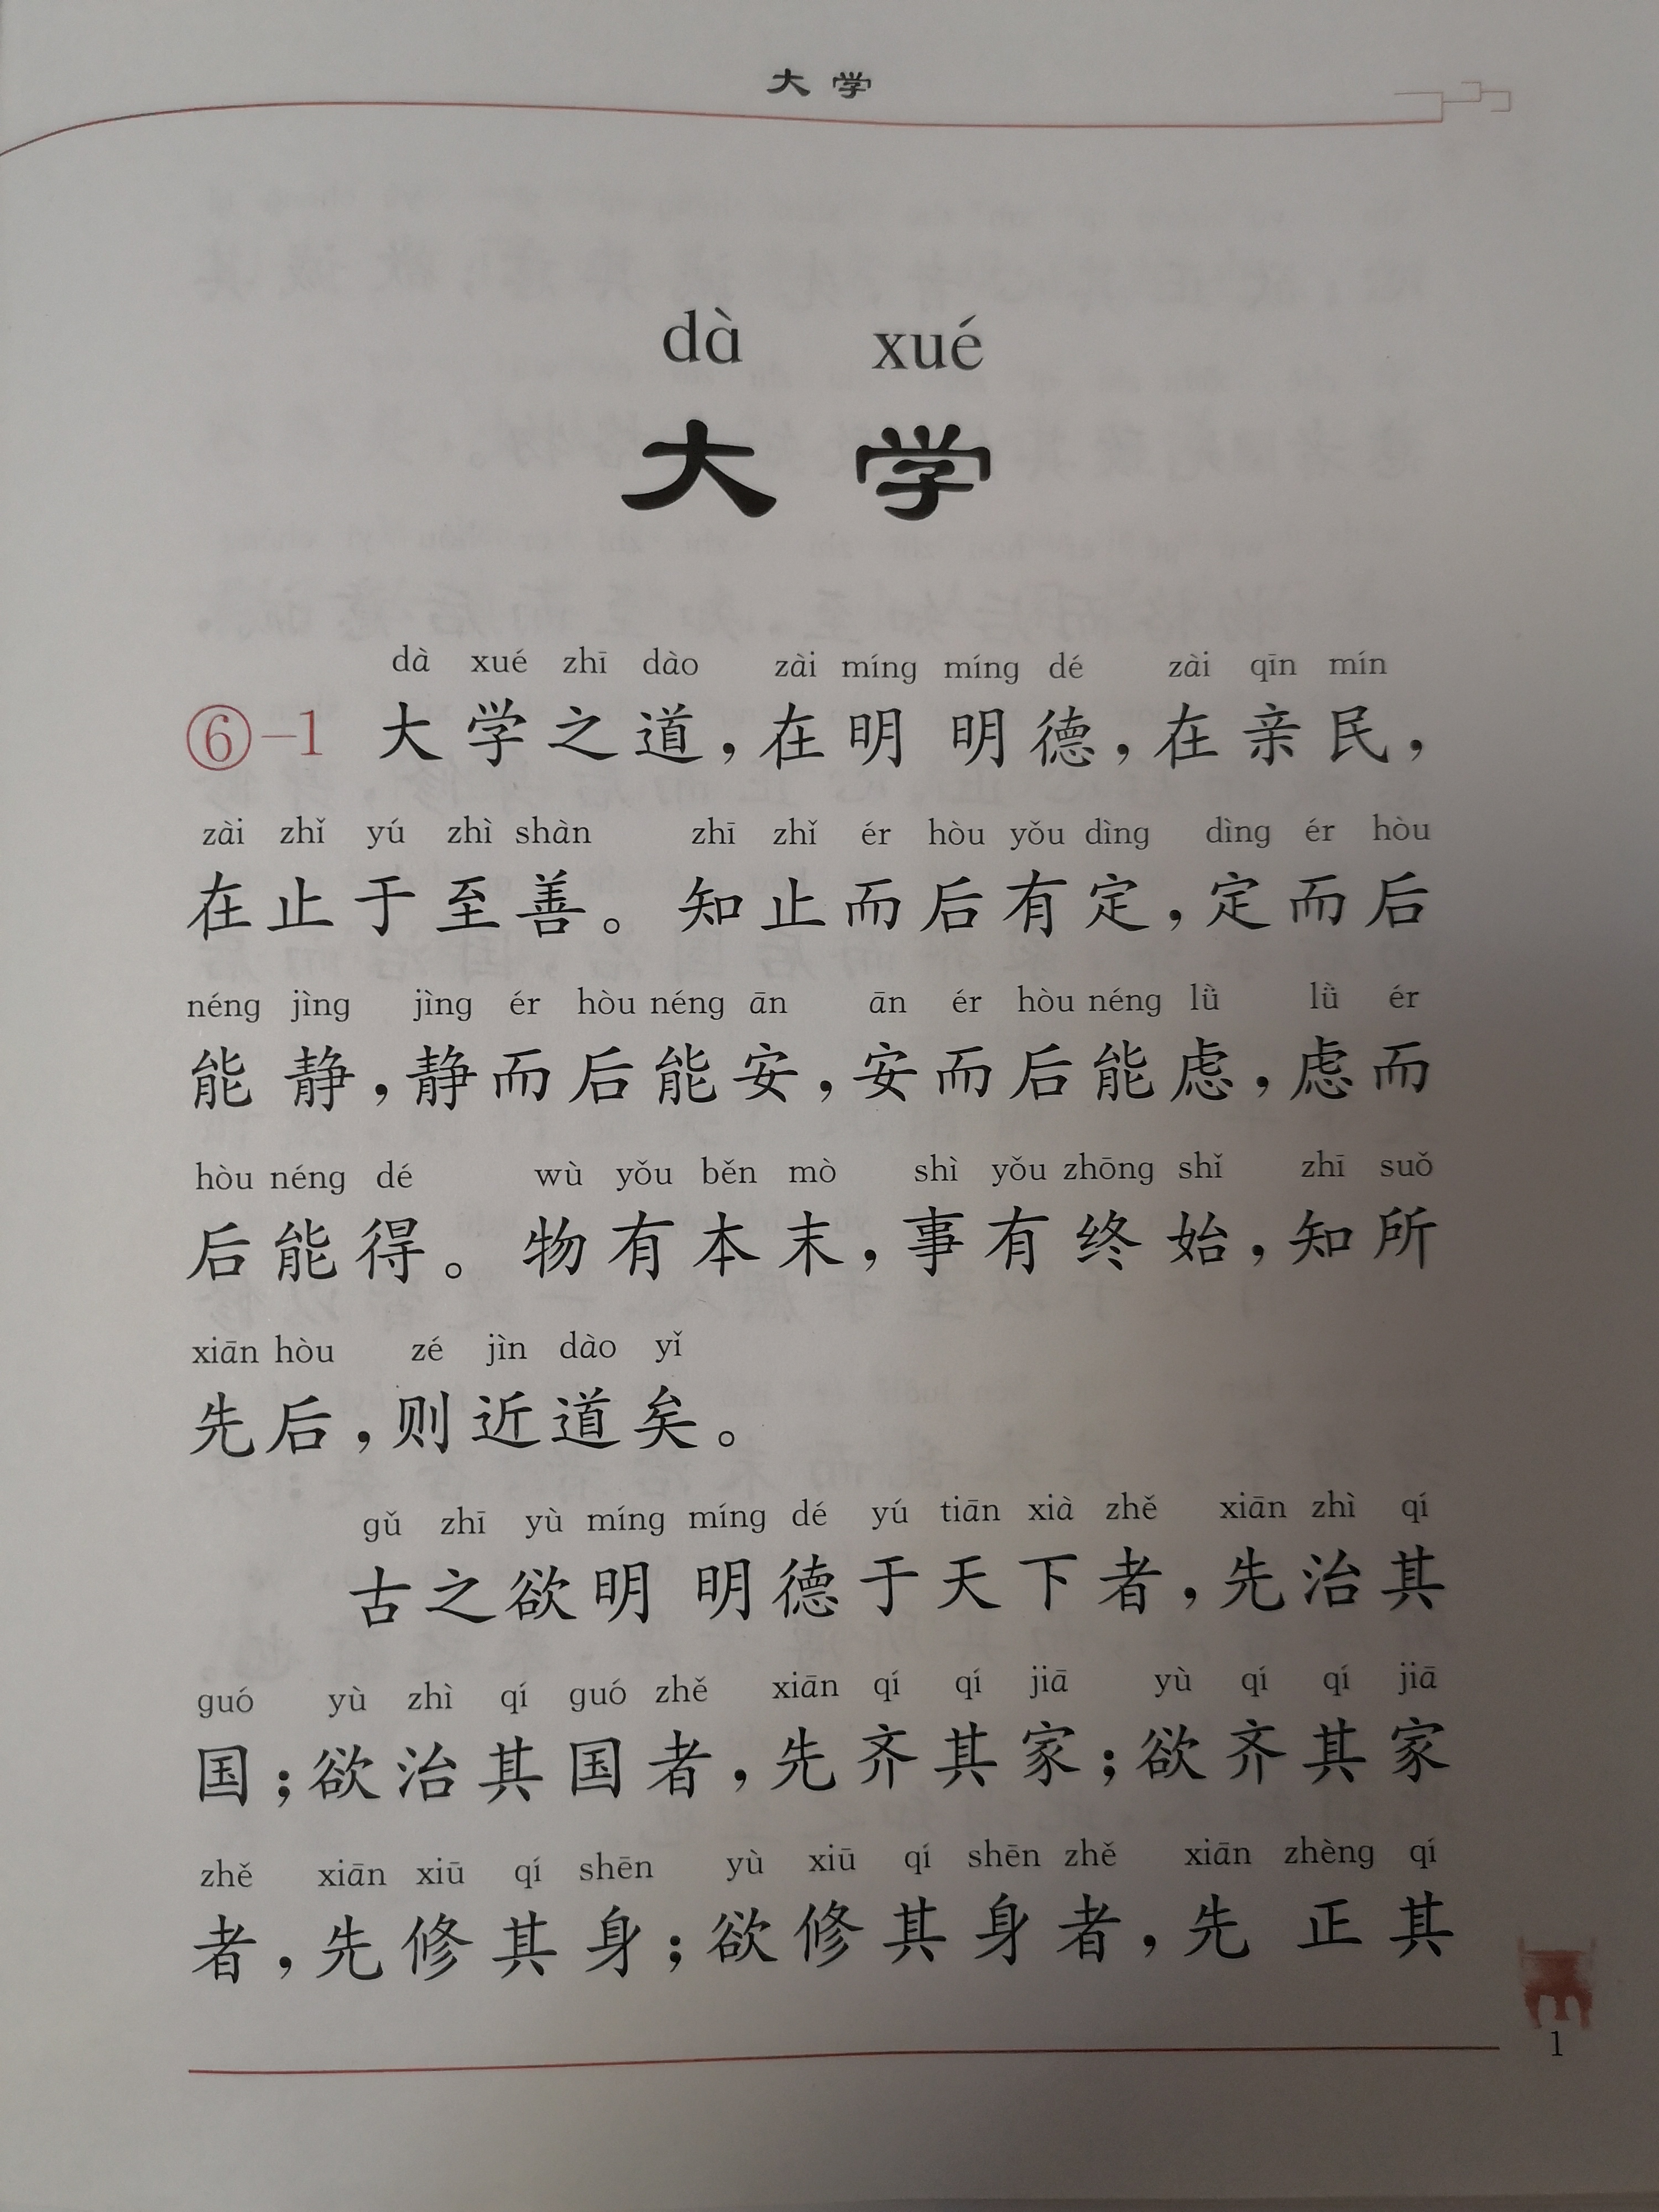 大学
dà xué
大学
dà xué zhī dào zài míng míng dé zài qīn mín
⑥-1 大学之道，在明明德，在亲民，
zài zhǐ yú zhì shàn zhī zhǐ ér hòu yǒu dìng dìng ér hòu
在止于至善。知止而后有定，定而后
néng jìng jìng ér hòu néng ān ān ér hòu néng lǜ lǜ ér
能静，静而后能安，安而后能虑，虑而
hòu néng dé wù yǒu běn mò shì yǒu zhōng shǐ zhī suǒ
后能得。物有本末，事有终始，知所
xiān hòu zé jìn dào yǐ
先后，则近道矣。
gǔ zhī yù míng míng dé yú tiān xià zhě xiān zhì qí
古之欲明明德于天下者，先治其
guó yù zhì qí guó zhě xiān qí qí jiā yù qí qí jiā
国；欲治其国者，先齐其家；欲齐其家
zhě xiān xiū qí shēn yù xiū qí shēn zhě xiān zhèng qí
者，先修其身；欲修其身者，先正其
1